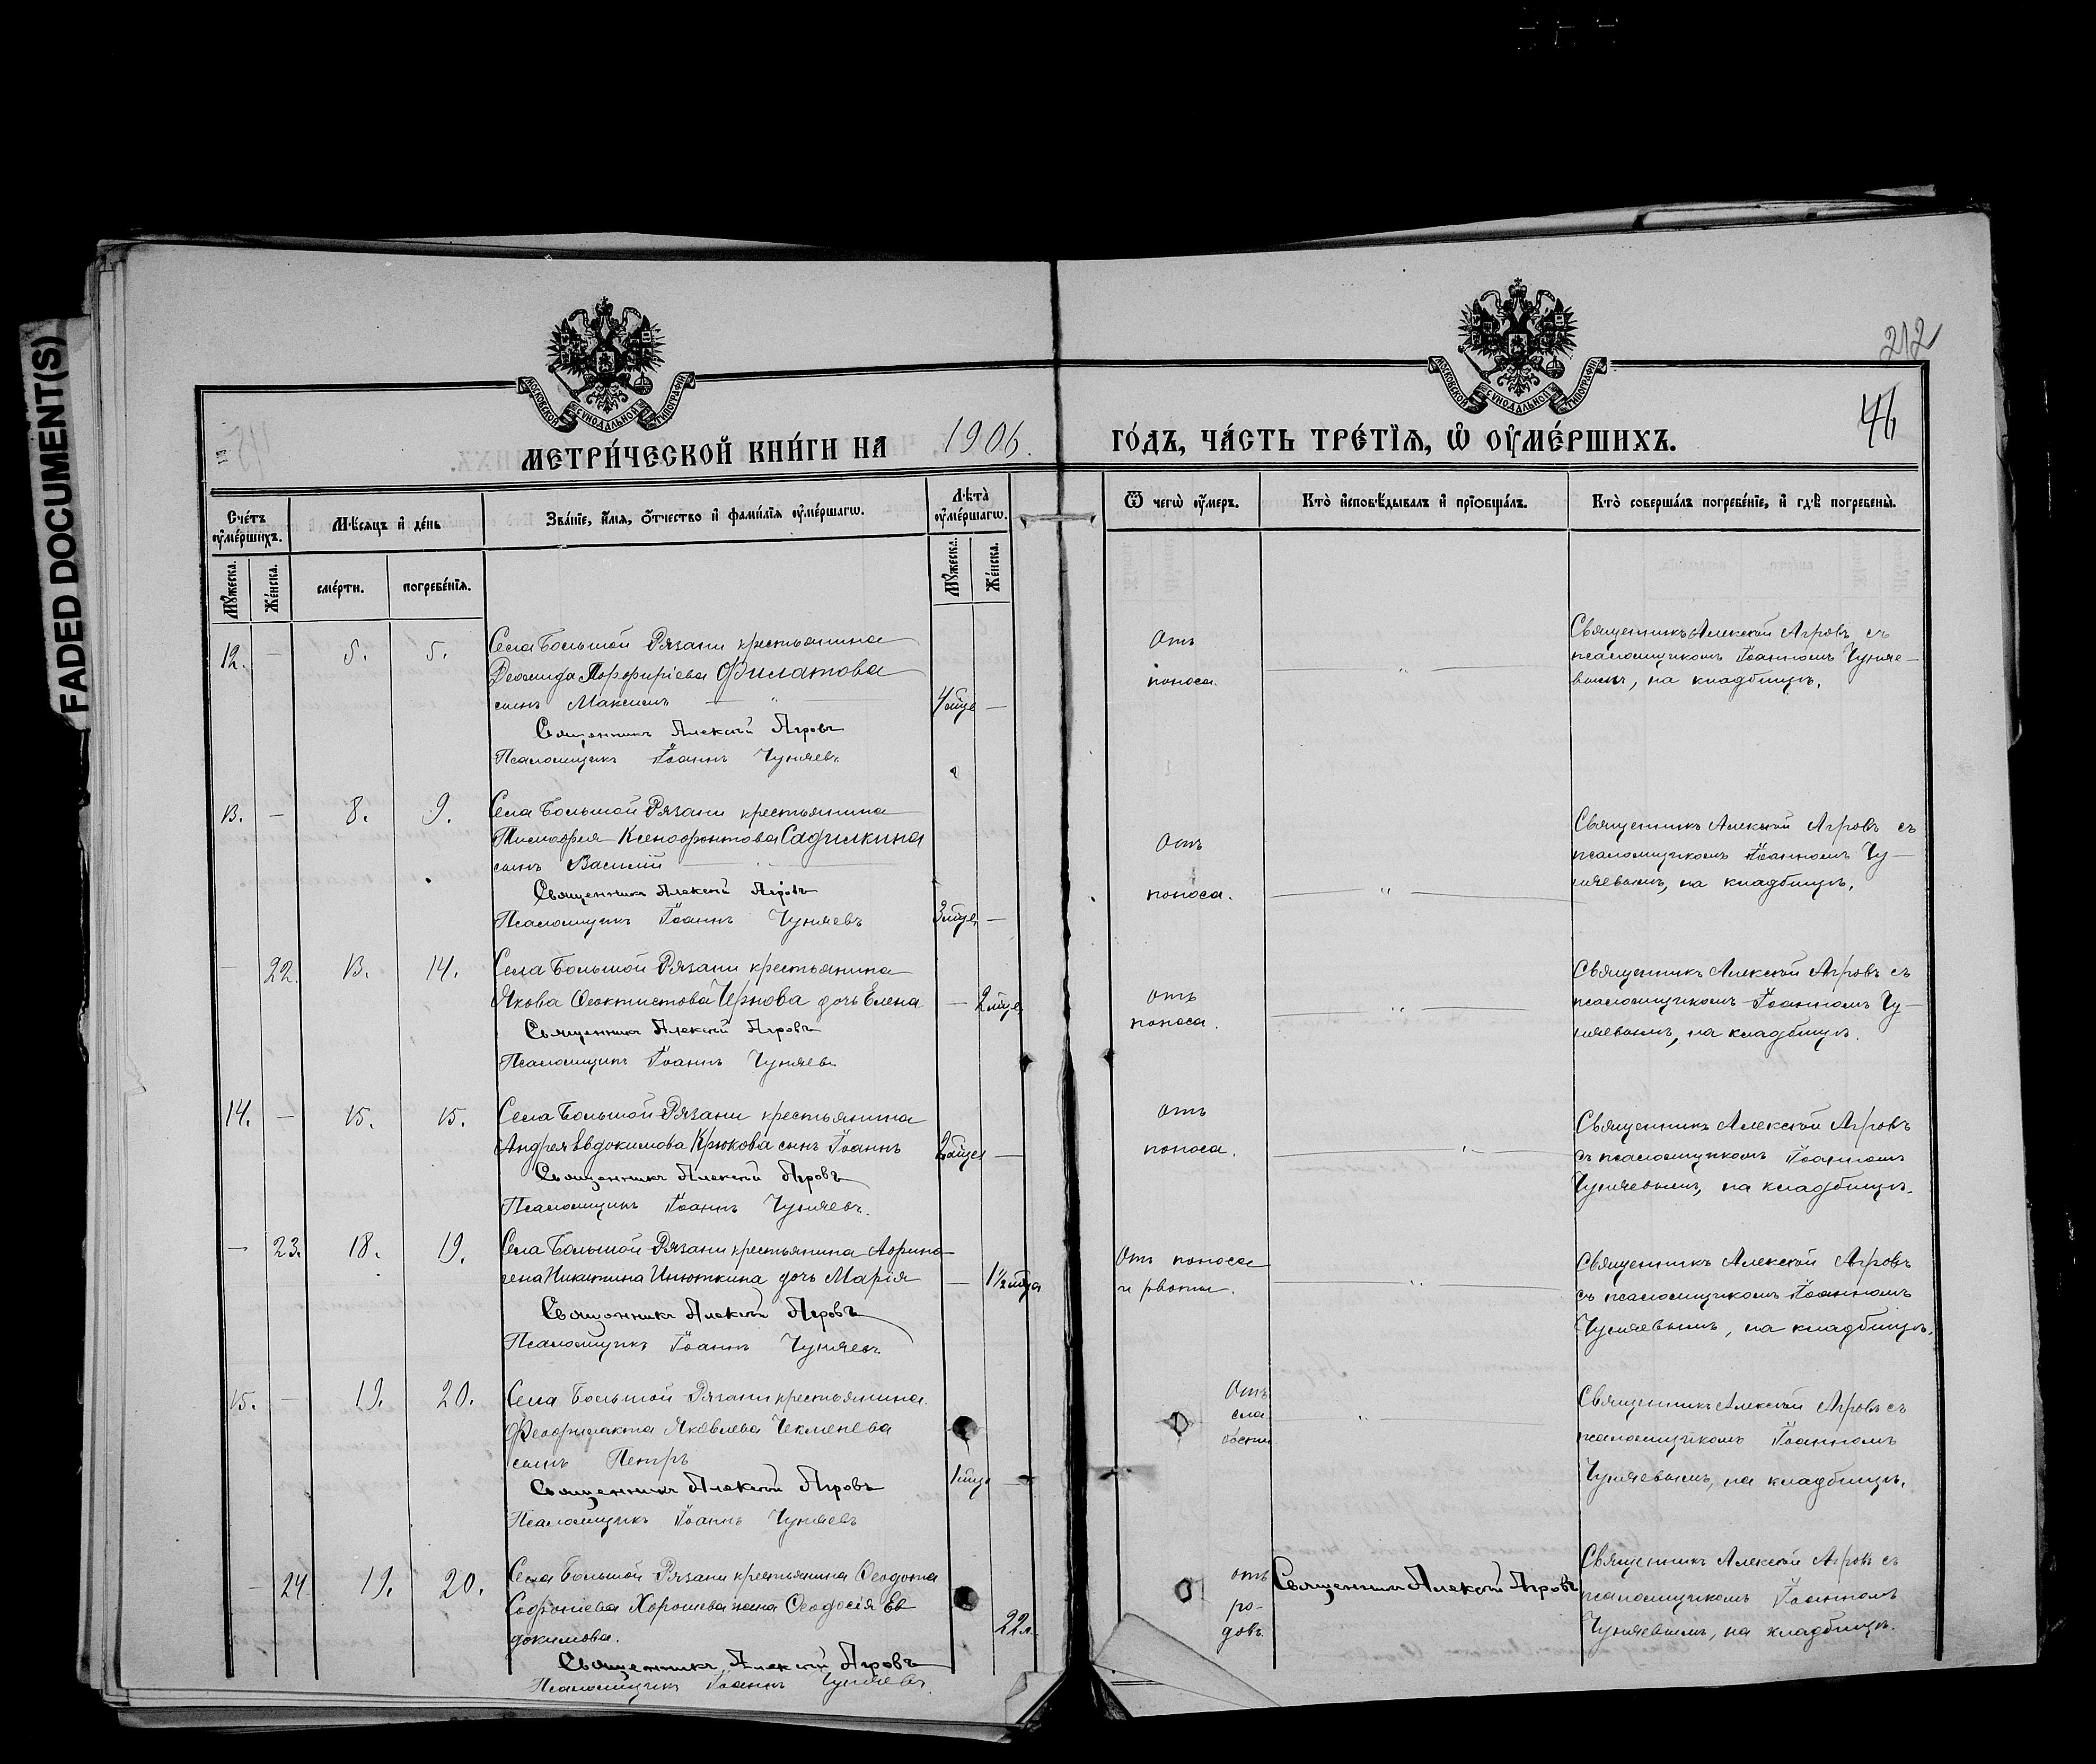 FADED DOCUMENT(S)
212
46
МОСКОВСКОЙ СѴНОДАЛЬНОЙ ТИПОГРАФІИ
МОСКОВСКОЙ СѴНОДАЛЬНОЙ ТИПОГРАФІИ
МЕТРИ́ЧЕСКОЙ КНИ́ГИ НА 1906. ГО́ДЪ, ЧА́СТЬ ТРЕ́ТЇѦ, Ѽ ОУ҆МЕ́РШИХЪ.
Сче́тъ оу҆ме́ршихъ.
Мѣсяцъ и҆ де́нь
Зва́нїе, и҆́мѧ, ѻ҆́тчество и҆ фами́лїѧ оу҆ме́ршагѡ.
Лѣта̀ оу҆ме́ршагѡ.
Ѿ чегѡ̀ оу҆́меръ.
Кто̀ и҆сповѣ́дывалъ и҆ прїѡбща́лъ.
Кто̀ соверша́лъ погребе́нїе, и҆ гдѣ̀ погребены̀.
Мꙋ́жеска.
Же́нска.
сме́рти.
погребе́нїѧ.
Мꙋ́жеска.
Же́нска.
12. — 5. 5.
Села Большой Рязани крестьянина
Деомида Порфиріева Филатова
сынъ Максимъ — " —
Священникъ Алексѣй Агровъ
Псаломщикъ Іоаннъ Чуняевъ.
Отъ
поноса.
— " —
Священникъ Алексѣй Агровъ съ
псаломщикомъ Іоанномъ Чуняе—
вымъ, на кладбищѣ.
13. — 8. 9.
Села Большой Рязани крестьянина
Тимофея Ксенофонтова Садилкина
сынъ Василій — " —
Священникъ Алексѣй Агровъ
Псаломщикъ Іоаннъ Чуняевъ
3 мѣсц. —
Отъ
поноса.
— " —
Священникъ Алексѣй Агровъ съ
псаломщикомъ Іоанномъ Чу—
няевымъ, на кладбищѣ.
— 22. 13. 14.
Села Большой Рязани крестьянина
Якова Ѳеоктистова Чернова дочь Елена
Священникъ Алексѣй Агровъ
Псаломщикъ Іоаннъ Чуняевъ
— 2 мѣсц.
Отъ
поноса.
— " —
Священникъ Алексѣй Агровъ съ
псаломщикомъ Іоанномъ Чу—
няевымъ, на кладбищѣ.
14. — 15. 15.
Села Большой Рязани крестьянина
Андрея Евдокимова Крюкова сынъ Іоаннъ
Священникъ Алексѣй Агровъ
Псаломщикъ Іоаннъ Чуняевъ.
Отъ
поноса.
— " —
Священникъ Алексѣй Агровъ
съ псаломщикомъ Іоанномъ
Чуняевымъ, на кладбищѣ.
— 23. 18. 19.
Села Большой Рязани крестьянина Аѳрино—
гена Никитина Инюткина дочь Марія
Священникъ Алексѣй Агровъ
Псаломщикъ Іоаннъ Чуняевъ
— 1½ мѣсца
Отъ поноса
и рвоты.
— " —
Священникъ Алексѣй Агровъ
съ псаломщикомъ Іоанномъ
Чуняевымъ, на кладбищѣ.
15. — 19. 20.
Села Большой Рязани крестьянина
Феофилакта Яковлева Чекменева
сынъ Петръ
Священникъ Алексѣй Агровъ
Псаломщикъ Іоаннъ Чуняевъ
Отъ
сла
бости
— " —
Священникъ Алексѣй Агровъ съ
псаломщикомъ Іоанномъ
Чуняевымъ, на кладбищѣ.
— 24. 19. 20.
Села Большой Рязани крестьянина Ѳеодота
Софоніева Хорошева жена Ѳеодосія Ев
докимова.
Священникъ Алексѣй Агровъ
Псаломщикъ Іоаннъ Чуняевъ
22 л.
отъ
ро-
довъ.
Священникъ Алексѣй Агровъ
Священникъ Алексѣй Агровъ съ
псаломщикомъ Іоанномъ
Чуняевымъ, на кладбищѣ.